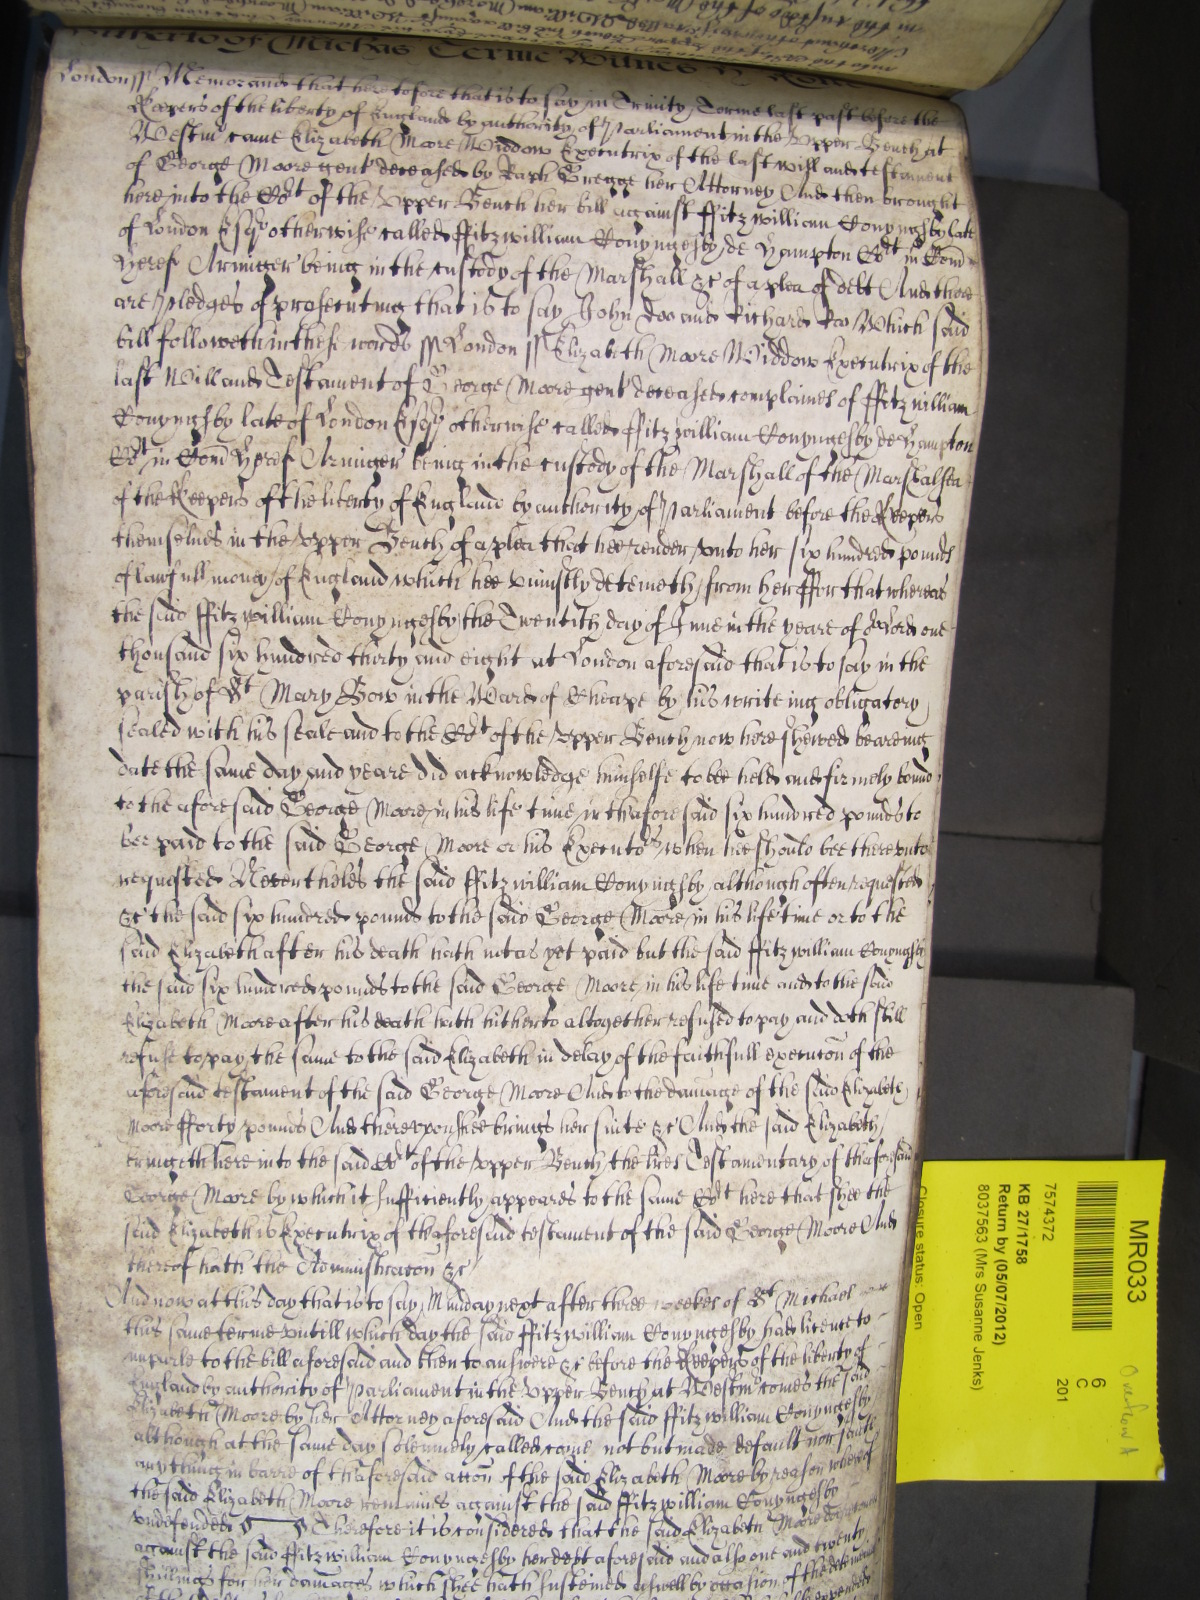 Adhuc of Michas Terme Witnes H Rolle
London ss Memorand that heretofore that is to say in Trinity Terme last past before the
Keepers of the liberty of England by authority of Parliament in the Upper Bench at
Westmr came Elizabeth Moore Widdow Executrix of the last will and testament
of George Moore gent deceased by Raph Gregge her Attorney And then brought
here into the Cort of the Upper Bench her bill against ffitzwilliam Conyngsby late
of London Esqr otherwise called ffitzwilliam Conyngesby de Hampton Cort in Com
Heref Armiger being in the custody of the Marshall &c of a plea of debt And there
are pledges of prosecuting that is to say John Doo and Richard Roo Which said
bill followeth in these words ss London ss Elizabeth Moore Widdow Executrix of the
last Will and Testament of George Moore gent deceased complaines of ffitzwilliam
Conyngsby late of London Esqr otherwise called ffitzwilliam Conyngesby de Hampton
Cort in Com Heref Armiger being in the custody of the Marshall of the Marshalsea
of the Keepers of the liberty of England by authority of Parliament before the Keepers
themselves in the Upper Bench of a plea that hee render unto her six hundred pounds
of lawfull money of England which hee uniustly deteineth from her ffor that whereas
the said ffitzwilliam Conyngesby the Twentith day of June in the yeare of or Lord one
thousand six hundred thirty and eight at London aforesaid that is to say in the
parish of St Mary Bow in the Ward of Cheape by his writeing obligatory
sealed with his seale and to the Cort of the Upper Bench now here shewed beareing
date the same day and yeare did acknowledge himselfe to bee held and firmely bound
to the aforesaid George Moore in his life time in thaforesaid six hundred pounds to
bee paid to the said George Moore or his Executors when hee should bee thereunto
requested Neverthelès the said ffitzwilliam Conyngsby although often requested
&c the said six hundred pounds to the said George Moore in his life time or to the
said Elizabeth after his death hath not as yet paid but the said ffitzwilliam Conyngsby
the said six hundred pounds to the said George Moore in his life time and to the said
Elizabeth Moore after his death hath hitherto altogether refused to pay and doth still
refuse to pay the same to the said Elizabeth in delay of the faithfull execucon of the
aforesaid testament of the said George Moore And to the damage of the said Elizabeth
Moore fforty pounds And thereupon shee brings her suite &c And the said Elizabeth
bringeth here into the said Cort of the Upper Bench the lres Testamentary of thaforesaid
George Moore by which it sufficiently appeares to the same Cort here that shee the
said Elizabeth is Executrix of thaforesaid testament of the said George Moore And
thereof hath the Administracon &c
And now at this day that is to say Munday next after three weekes of St Michael
this same terme untill which day the said ffitzwilliam Conyngesby had licence to
imparle to the bill aforesaid and then to answere &c before the Keepers of the liberty of
England by authority of Parliament in the Upper Bench at Westmr comes the said
Elizabeth Moore by her Attorney aforesaid And the said ffitzwilliam Conyngesby
although at the same day solemnely called came not but made default nor saith
any thing in barre of thaforesaid accon of the said Elizabeth Moore by reason whereof
the said Elizabeth Moore remaines against the said ffitzwilliam Conyngesby
undefended Therefore it is considered that the said Elizabeth Moore
against the said ffitzwilliam Conyngesby her debt aforesaid and also one and twenty
shillings for her damages which shee hath susteined aswell by occasion of the
MR033
6
C
201
7574372
KB 27/1758
Return by (05/07/2012)
8037563 (Mrs Susanne Jenks)
Closure status: Open